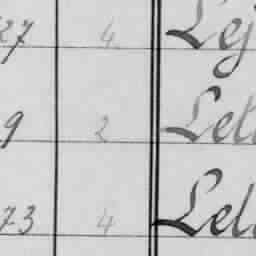 27 4 Lej
9 2 Let
73 4 Lel